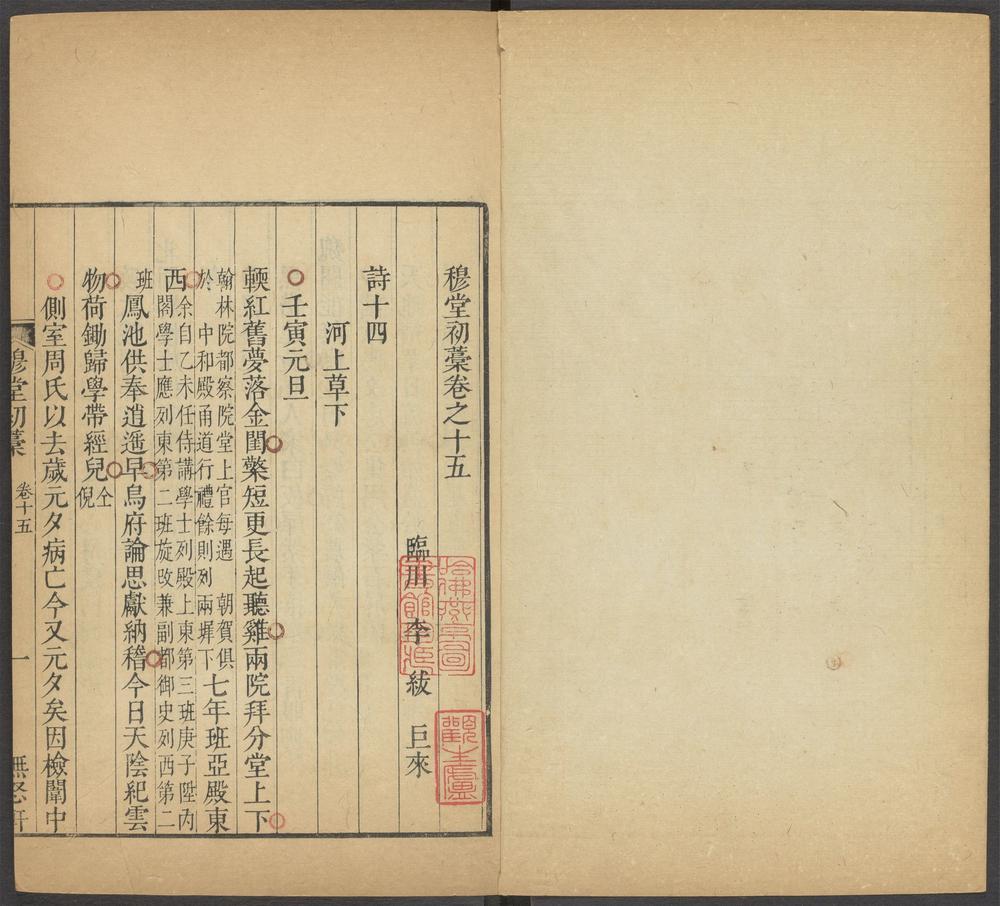 穆堂初藁卷之十五
臨川 李 紱 巨來
詩十四
河上草下
壬寅元旦
輭紅舊夢落金閨蘂短更長起聽雞兩院拜分堂上下
翰林院都察院堂上官每遇 朝賀俱
於 中和殿甬道行禮餘則列兩墀下
七年班亞殿東
西
余自乙未任侍講學士列殿上東第三班庚子陞內
閣學士應列東第二班旋攺兼副都御史列西第二
班
鳳池供奉逍遥早烏府論思獻納稽今日天陰紀雲
物荷鋤歸學帶經兒
仝
倪
側室周氏以去歲元夕病亡今又元夕矣因檢闈中
穆堂初藁 卷十五 一 無怒軒